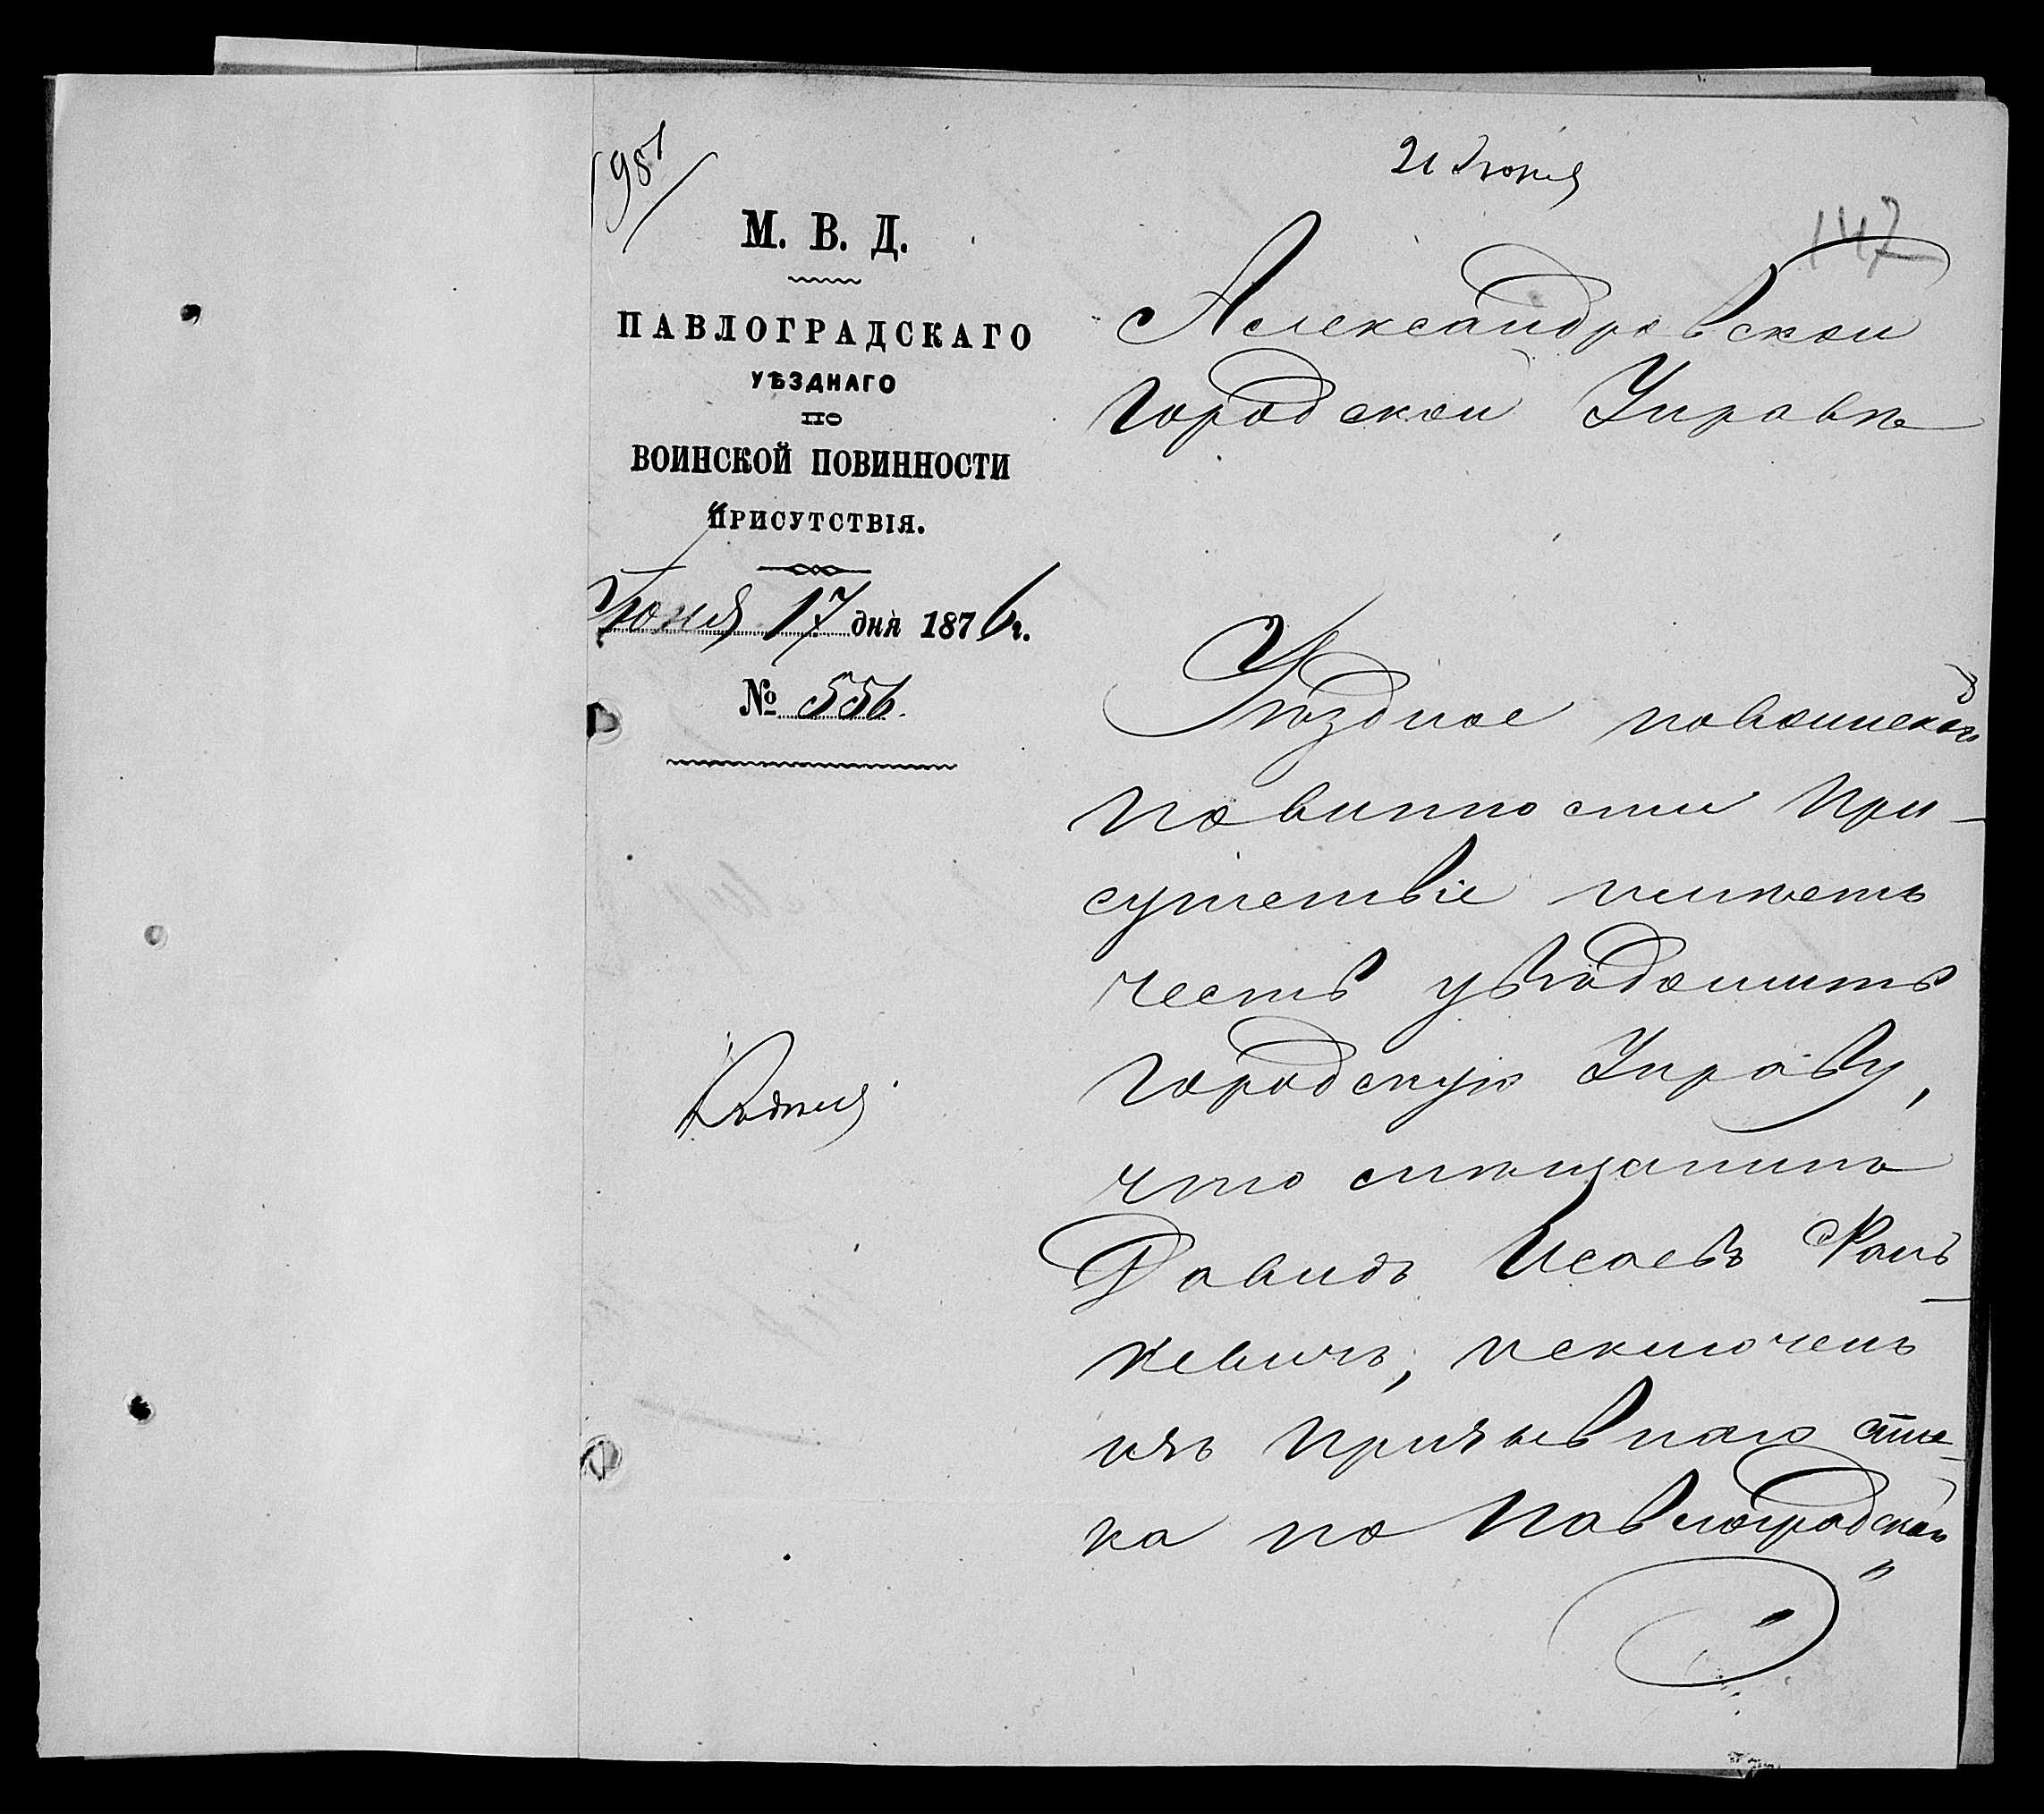 981
21 Июня
147
М. В. Д.
ПАВЛОГРАДСКАГО
УѢЗДНАГО
ПО
ВОИНСКОЙ ПОВИННОСТИ
ПРИСУТСТВІЯ.
Іюня 17 дня 1876 г.
№ 556.
Александровской
Городской Управѣ
Уѣздное по воинской
повинности При-
сутствіе имѣетъ
честь увѣдомить
Городскую Управу,
что мѣщанинъ
Давидъ Исаевъ
кевичъ, исключенъ
изъ призывнаго спис-
ка по Павлоградском